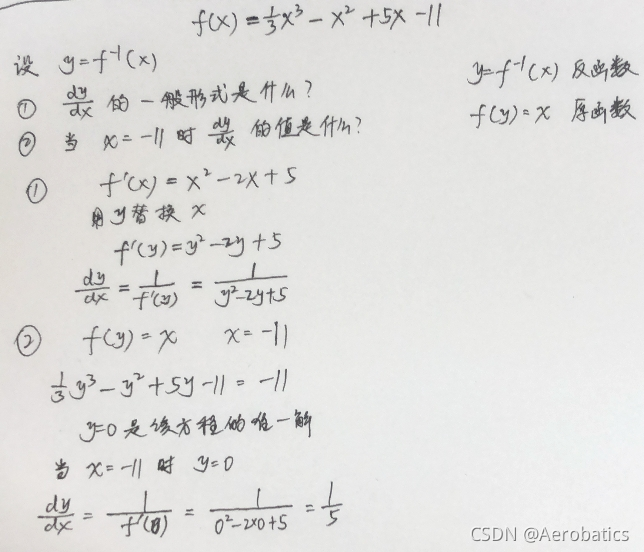 f(x) = 1/3 x³ − x² + 5x − 11
设 y = f⁻¹(x)
y = f⁻¹(x) 反函数
f(y) = x 原函数
① dy/dx 的一般形式是什么?
② 当 x = −11 时 dy/dx 的值是什么?
① f'(x) = x² − 2x + 5
用y替换 x
f'(y) = y² − 2y + 5
dy/dx = 1/f'(y) = 1/(y²−2y+5)
② f(y) = x x = −11
1/3 y³ − y² + 5y − 11 = −11
y=0 是该方程的唯一解
当 x = −11 时 y=0
dy/dx = 1/f'(0) = 1/(0²−2×0+5) = 1/5
CSDN @Aerobatics